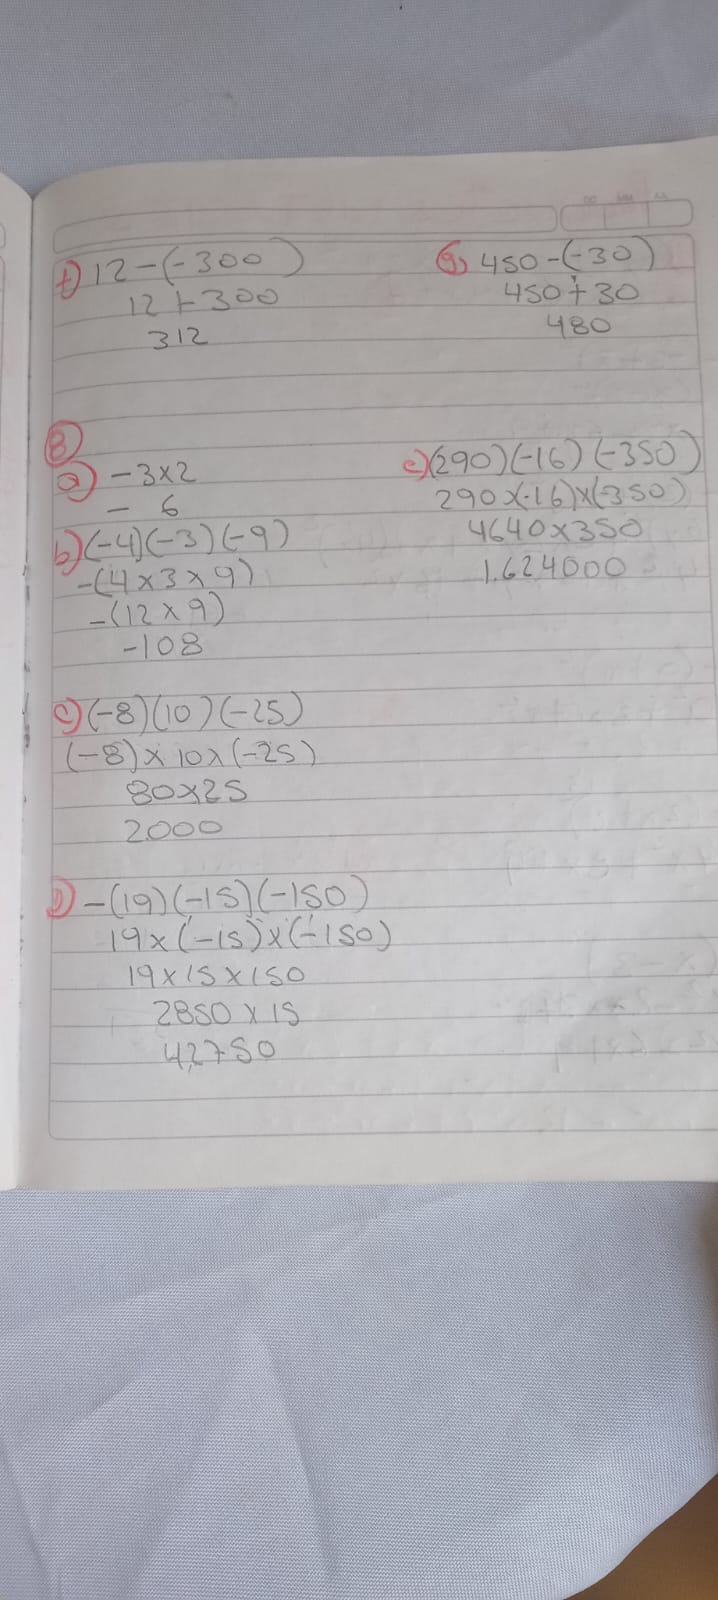 f) 12-(-300)
12+300
312
g) 450-(-30)
450+30
480
B
a) -3x2
- 6
b) (-4)(-3)(-9)
-(4x3x9)
-(12x9)
-108
c) (-8)(10)(-25)
(-8)x10x(-25)
80x25
2000
D) -(19)(-15)(-150)
19x(-15)x(-150)
19x15x150
2850x15
42750
e) (290)(-16)(-350)
290x(-16)x(-350)
4640x350
1.624000